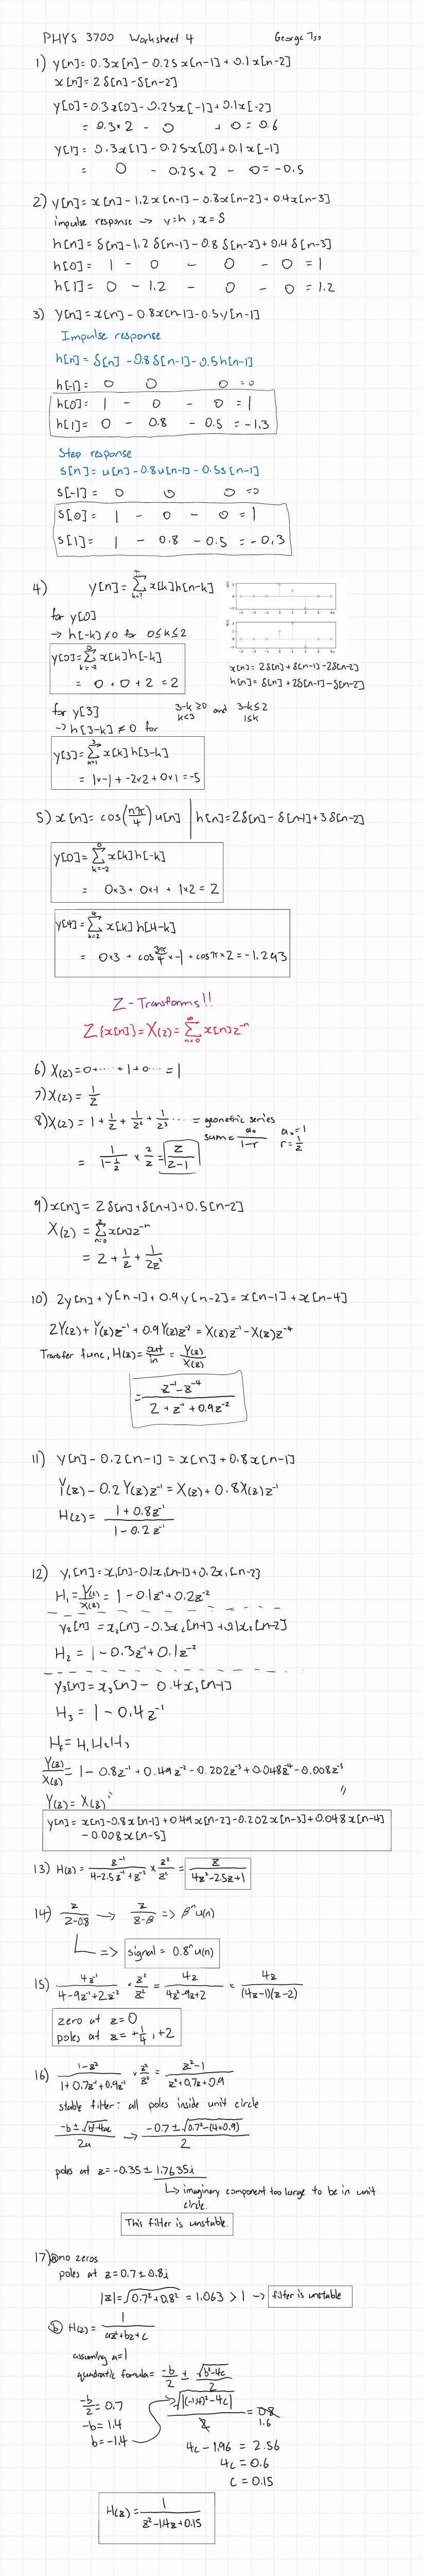 PHYS 3700 Worksheet 4 George Tso
1) y[n] = 0.3x[n] - 0.25x[n-1] + 0.1x[n-2]
x[n] = 2δ[n] - δ[n-2]
y[0] = 0.3x[0] - 0.25x[-1] + 0.1x[-2]
= 0.3×2 - 0 + 0 = 0.6
y[1] = 0.3x[1] - 0.25x[0] + 0.1x[-1]
= 0 - 0.25×2 - 0 = -0.5
2) y[n] = x[n] - 1.2x[n-1] - 0.8x[n-2] + 0.4x[n-3]
impulse response → y=h, x=δ
h[n] = δ[n] - 1.2δ[n-1] - 0.8δ[n-2] + 0.4δ[n-3]
h[0] = 1 - 0 - 0 - 0 = 1
h[1] = 0 - 1.2 - 0 - 0 = 1.2
3) y[n] = x[n] - 0.8x[n-1] - 0.5y[n-1]
Impulse response
h[n] = δ[n] - 0.8δ[n-1] - 0.5h[n-1]
h[-1] = 0 0 0 = 0
h[0] = 1 - 0 - 0 = 1
h[1] = 0 - 0.8 - 0.5 = -1.3
Step response
s[n] = u[n] - 0.8u[n-1] - 0.5s[n-1]
s[-1] = 0 0 0 = 0
s[0] = 1 - 0 - 0 = 1
s[1] = 1 - 0.8 - 0.5 = -0.3
4) y[n] = Σ x[k]h[n-k]
for y[0]
→ h[-k] ≠ 0 for 0≤k≤2
y[0] = Σ x[k]h[-k]
k=-2
= 0 + 0 + 2 = 2
x[n] = 2δ[n] + δ[n-1] - 2δ[n-2]
h[n] = δ[n] + 2δ[n-1] - δ[n-2]
for y[3] 3-k≥0 and 3-k≤2
→ h[3-k] ≠ 0 for k≤3 1≤k
y[3] = Σ x[k]h[3-k]
= 1×-1 + -2×2 + 0×1 = -5
5) x[n] = cos(nπ/4) u[n] | h[n] = 2δ[n] - δ[n-1] + 3δ[n-2]
y[0] = Σ x[k]h[-k]
k=-2
= 0×3 + 0×-1 + 1×2 = 2
y[4] = Σ x[k]h[4-k]
k=2
= 0×3 + cos 3π/4 × -1 + cosπ×2 = -1.293
Z-Transforms!!
Z{x[n]} = X(z) = Σ x[n]z⁻ⁿ
n=0
6) X(z) = 0+····+1+0··· = 1
7) X(z) = 1/z
8) X(z) = 1 + 1/z + 1/z² + 1/z³ ··· = geometric series
sum = a₀/(1-r) a₀=1 r=1/z
= 1/(1-1/z) × z/z = z/(z-1)
9) x[n] = 2δ[n] + δ[n-1] + 0.5[n-2]
X(z) = Σ x[n]z⁻ⁿ
n=0
= 2 + 1/z + 1/2z²
10) 2y[n] + y[n-1] + 0.9y[n-2] = x[n-1] + x[n-4]
2Y(z) + Y(z)z⁻¹ + 0.9Y(z)z⁻² = X(z)z⁻¹ - X(z)z⁻⁴
Transfer func, H(z) = out/in = Y(z)/X(z)
= (z⁻¹ - z⁻⁴)/(2 + z⁻¹ + 0.9z⁻²)
11) y[n] - 0.2[n-1] = x[n] + 0.8x[n-1]
Y(z) - 0.2Y(z)z⁻¹ = X(z) + 0.8X(z)z⁻¹
H(z) = (1 + 0.8z⁻¹)/(1 - 0.2z⁻¹)
12) y₁[n] = x₁[n] - 0.1x₁[n-1] + 0.2x₁[n-2]
H₁ = Y(z)/X(z) = 1 - 0.1z⁻¹ + 0.2z⁻²
y₂[n] = x₂[n] - 0.3x₂[n-1] + 0.1x₂[n-2]
H₂ = 1 - 0.3z⁻¹ + 0.1z⁻²
y₃[n] = x₃[n] - 0.4x₃[n-1]
H₃ = 1 - 0.4z⁻¹
H = H₁H₂H₃
Y(z)/X(z) = 1 - 0.8z⁻¹ + 0.49z⁻² - 0.202z⁻³ + 0.048z⁻⁴ - 0.008z⁻⁵
Y(z) = X(z) " "
y[n] = x[n] - 0.8x[n-1] + 0.49x[n-2] - 0.202x[n-3] + 0.048x[n-4]
- 0.008x[n-5]
13) H(z) = z⁻¹/(4 - 2.5z⁻¹ + z⁻²) × z²/z² = z/(4z² - 2.5z + 1)
14) z/(z-0.8) → z/(z-β) => βⁿu(n)
=> signal = 0.8ⁿu(n)
15) 4z⁻¹/(4 - 9z⁻¹ + 2z⁻²) × z²/z² = 4z/(4z² - 9z + 2) = 4z/((4z-1)(z-2))
zero at z=0
poles at z=+1/4, +2
16) (1-z²)/(1 + 0.7z⁻¹ + 0.9z⁻²) × z²/z² = (z²-1)/(z² + 0.7z + 0.9)
stable filter: all poles inside unit circle
(-b ± √(b²-4ac))/2a → (-0.7 ± √(0.7²-(4×0.9)))/2
poles at z=-0.35 ± 1.7635i
↳ imaginary component too large to be in unit
circle.
This filter is unstable.
17) ⓐ no zeros
poles at z=0.7±0.8i
|z| = √(0.7²+0.8²) = 1.063 > 1 → filter is unstable
ⓑ H(z) = 1/(az²+bz+c)
assuming a=1
quadratic formula = -b/2 ± √(b²-4c)/2
-b/2 = 0.7 √|(-1.4)²-4c|/2 = 0.8
-b = 1.4 1.6
b = -1.4 4c - 1.96 = 2.56
4c = 0.6
c = 0.15
H(z) = 1/(z² - 1.4z + 0.15)